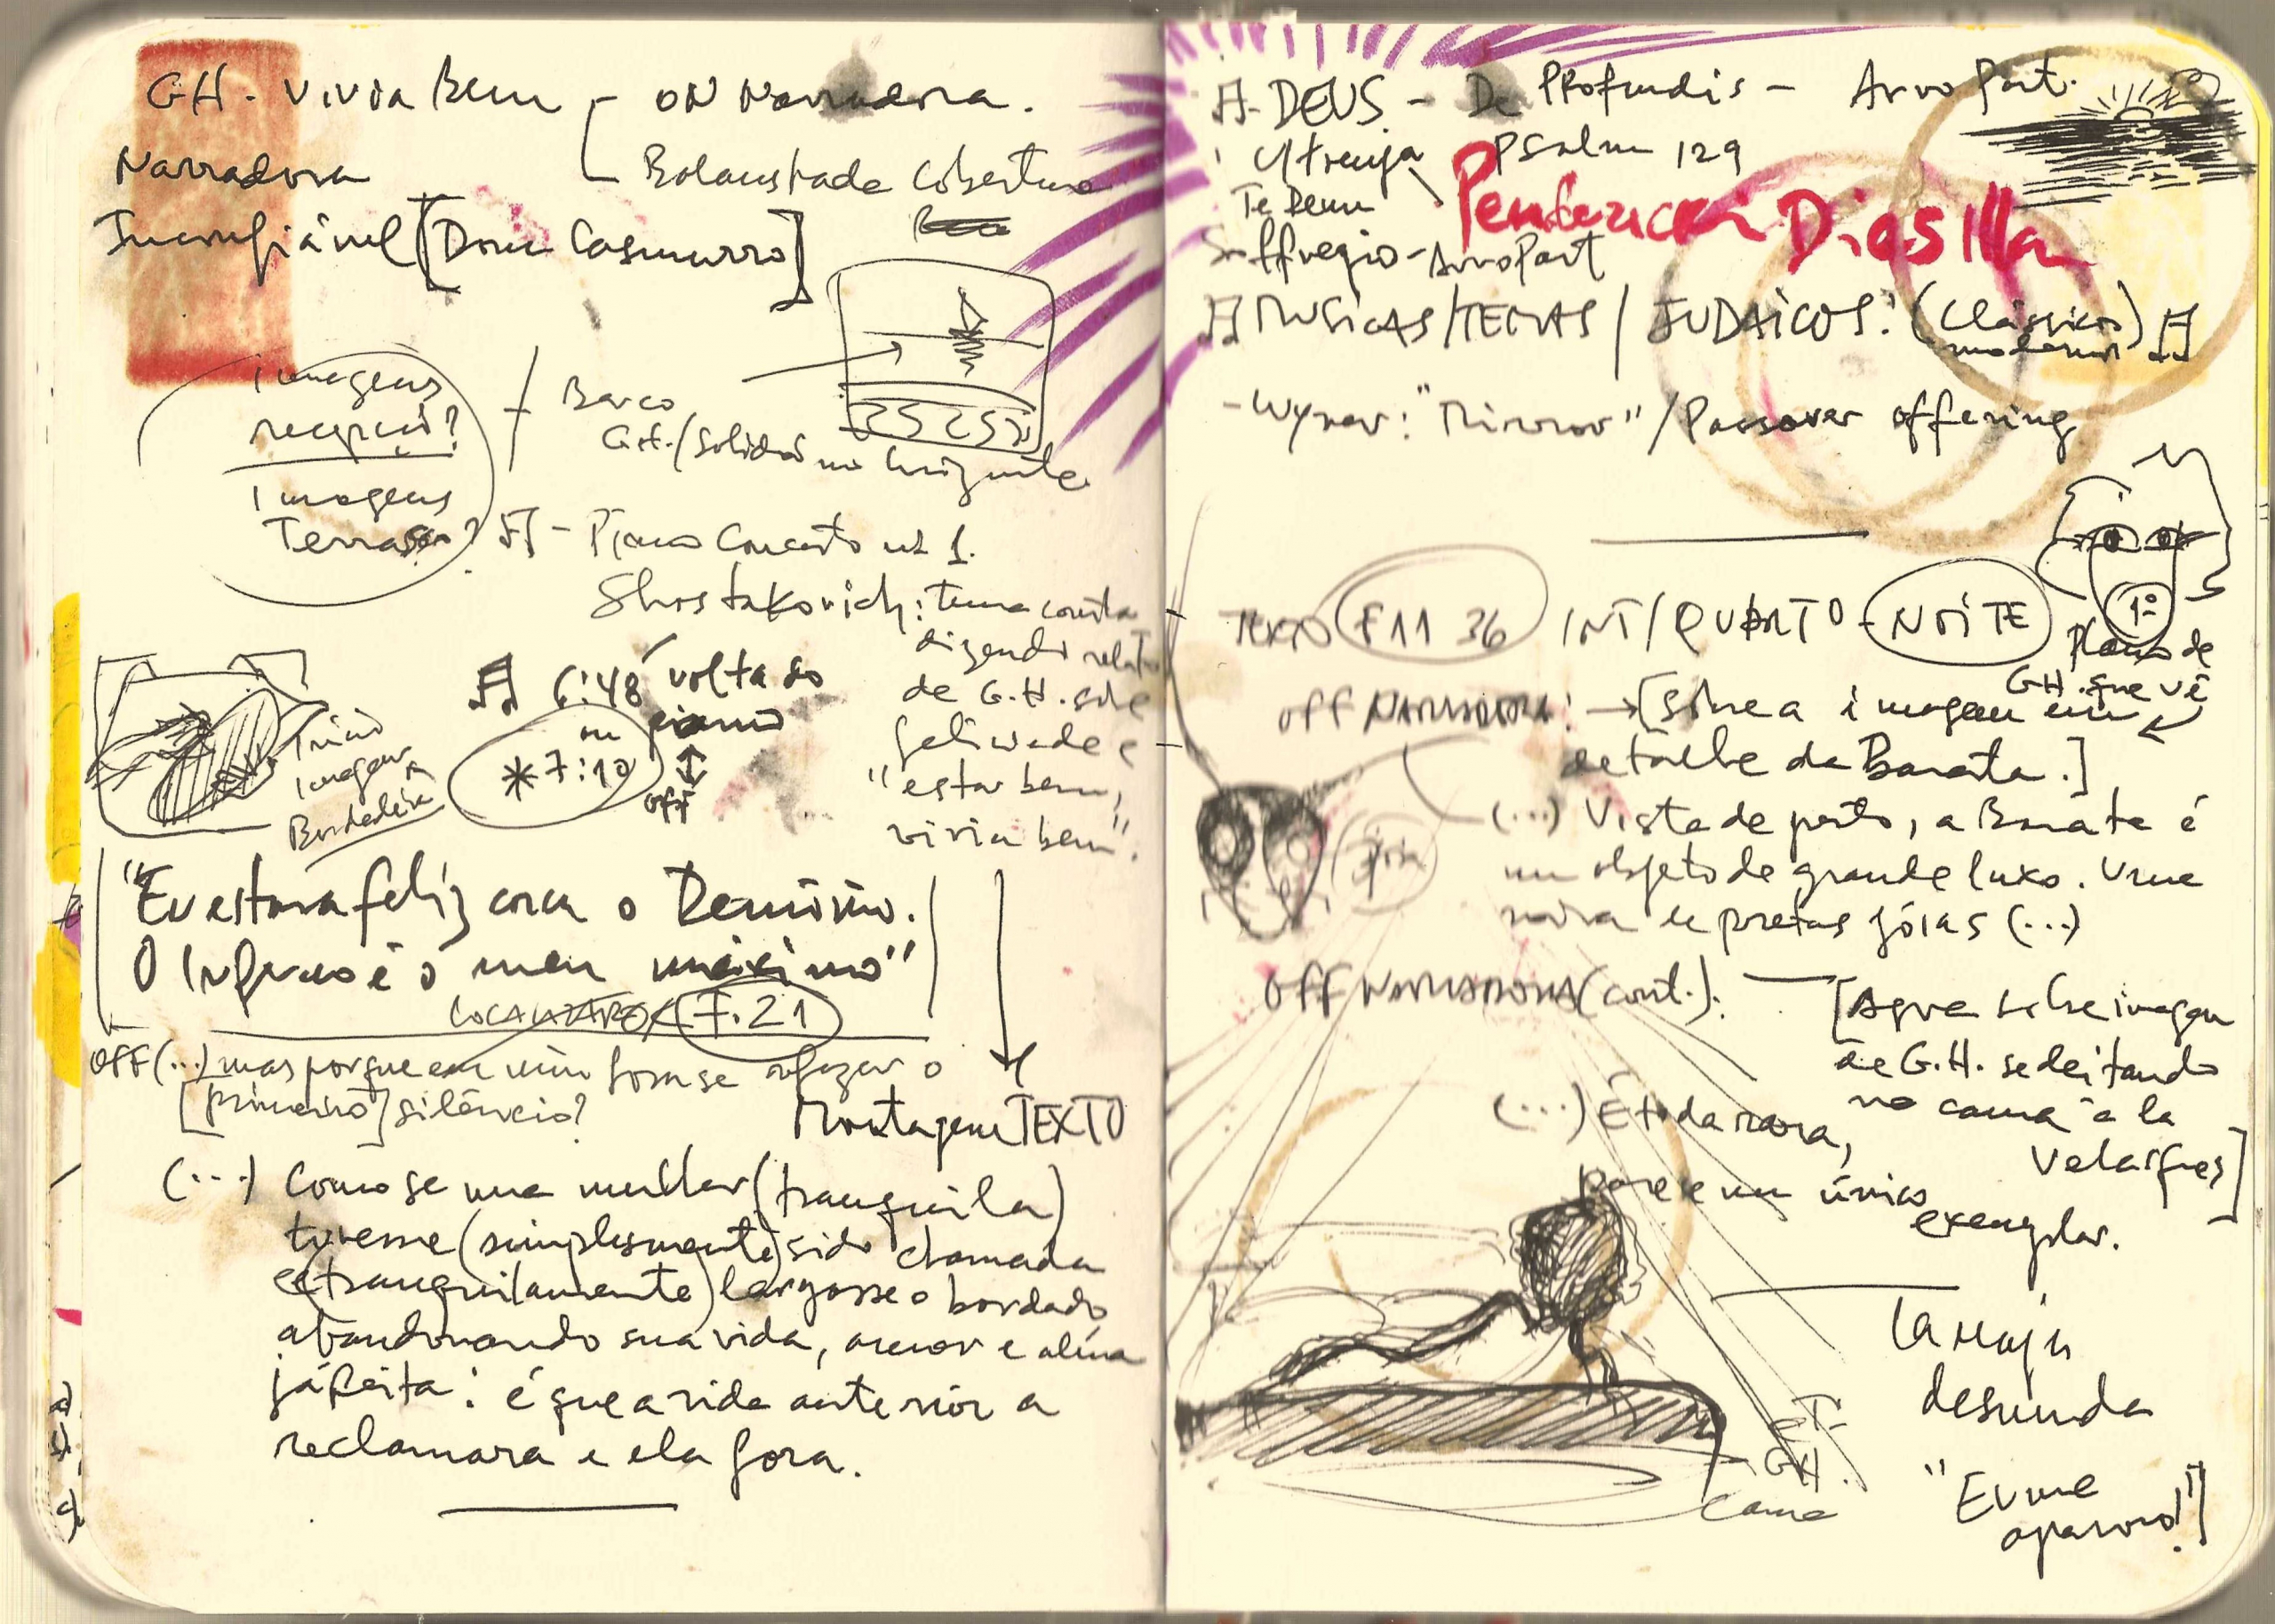 GH. Vivia Bem - ON Narradora.
Narradora
Balaustrada Cobertura
Inconfiável [Dom Casmurro]
imagens
recepção?
imagens
Terraço?
Barco
G.H./solidão no horizonte
- Piano Concerto nº 1.
Shostakovich: tema
dizendo relato
de G.H. sobre
felicidade e
"estar bem,
vivia bem".
6:48 volta do
ou piano
* 7:10
off
Início
imagem
Bordadeira
"Eu estava feliz como o Demônio.
O Inferno é o meu máximo"
F.21
OFF (...) mas porque em mim fosse refazer o
[primeiro] silêncio?
Montagem TEXTO
(...) Como se uma mulher (tranquila)
tivesse (simplesmente) sido chamada
e (tranquilamente) largasse o bordado
abandonando sua vida, amor e alma
já feita: é que a vida anterior a
reclamara e ela fora.
DEUS - De Profundis - Arvo Part.
Utrenja Psalm 129
Te Deum
Penderecki Dies Illa
Arvo Part
MUSICAS/TEMAS/JUDAICOS: (Clássicos)
modernos
- Wyner: "Mirror" / Passover offering
TEXTO F11 36 INT/QUARTO - NOITE
1º
Plano de
G.H. que vê
OFF NARRADORA: → [Sobre a imagem em
detalhe da Barata.]
(...) Vista de perto, a Barata é
um objeto de grande luxo. Uma
noiva de pretas jóias (...)
OFF NARRADORA (cont.).
[Agora sobre imagem
de G.H. se deitando
na cama à la
Velasques]
(...) É toda rara,
parece um único
exemplar.
La maja
desnuda
G.H.
Cama
"Eu me
apavoro!"]